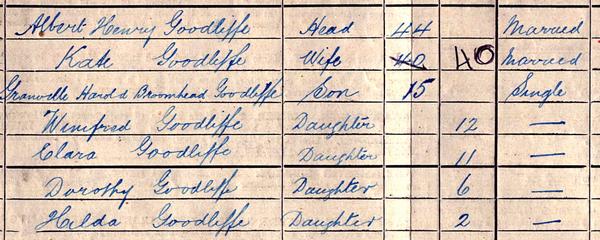 Albert Henry Goodliffe Head 44 Married
Kate Goodliffe Wife 40 40 Married
Granville Harold Broomhead Goodliffe Son 15 Single
Winifred Goodliffe Daughter 12 —
Clara Goodliffe Daughter 11 —
Dorothy Goodliffe Daughter 6 —
Hilda Goodliffe Daughter 2 —